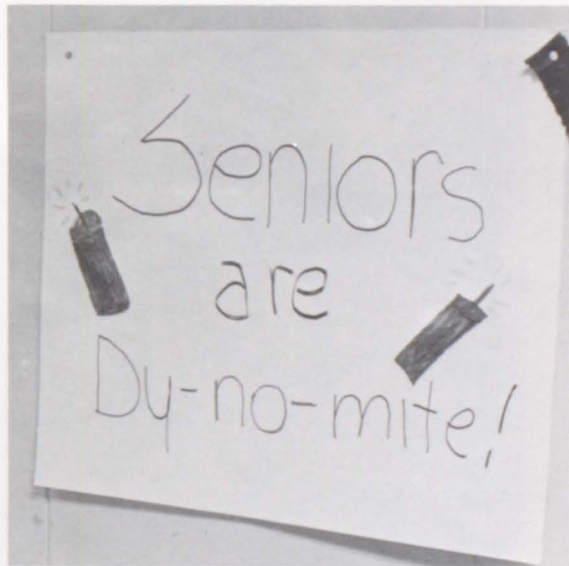 Seniors
are
Dy-no-mite!